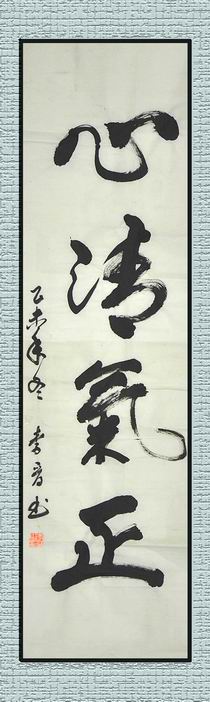 心清氣正
乙未年冬 李音书